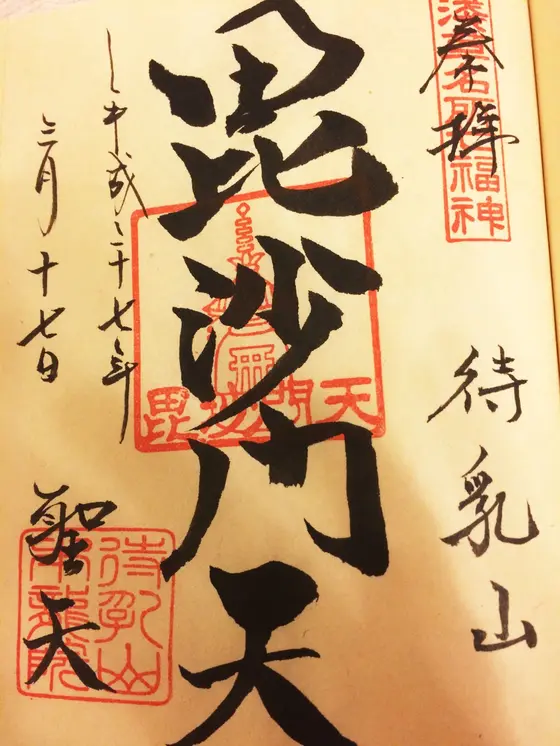 浅草名所七福神
奉拝
待乳山
毘沙門天
毘沙門天
平成二十七年
三月十七日
聖天
待乳山
本龍院